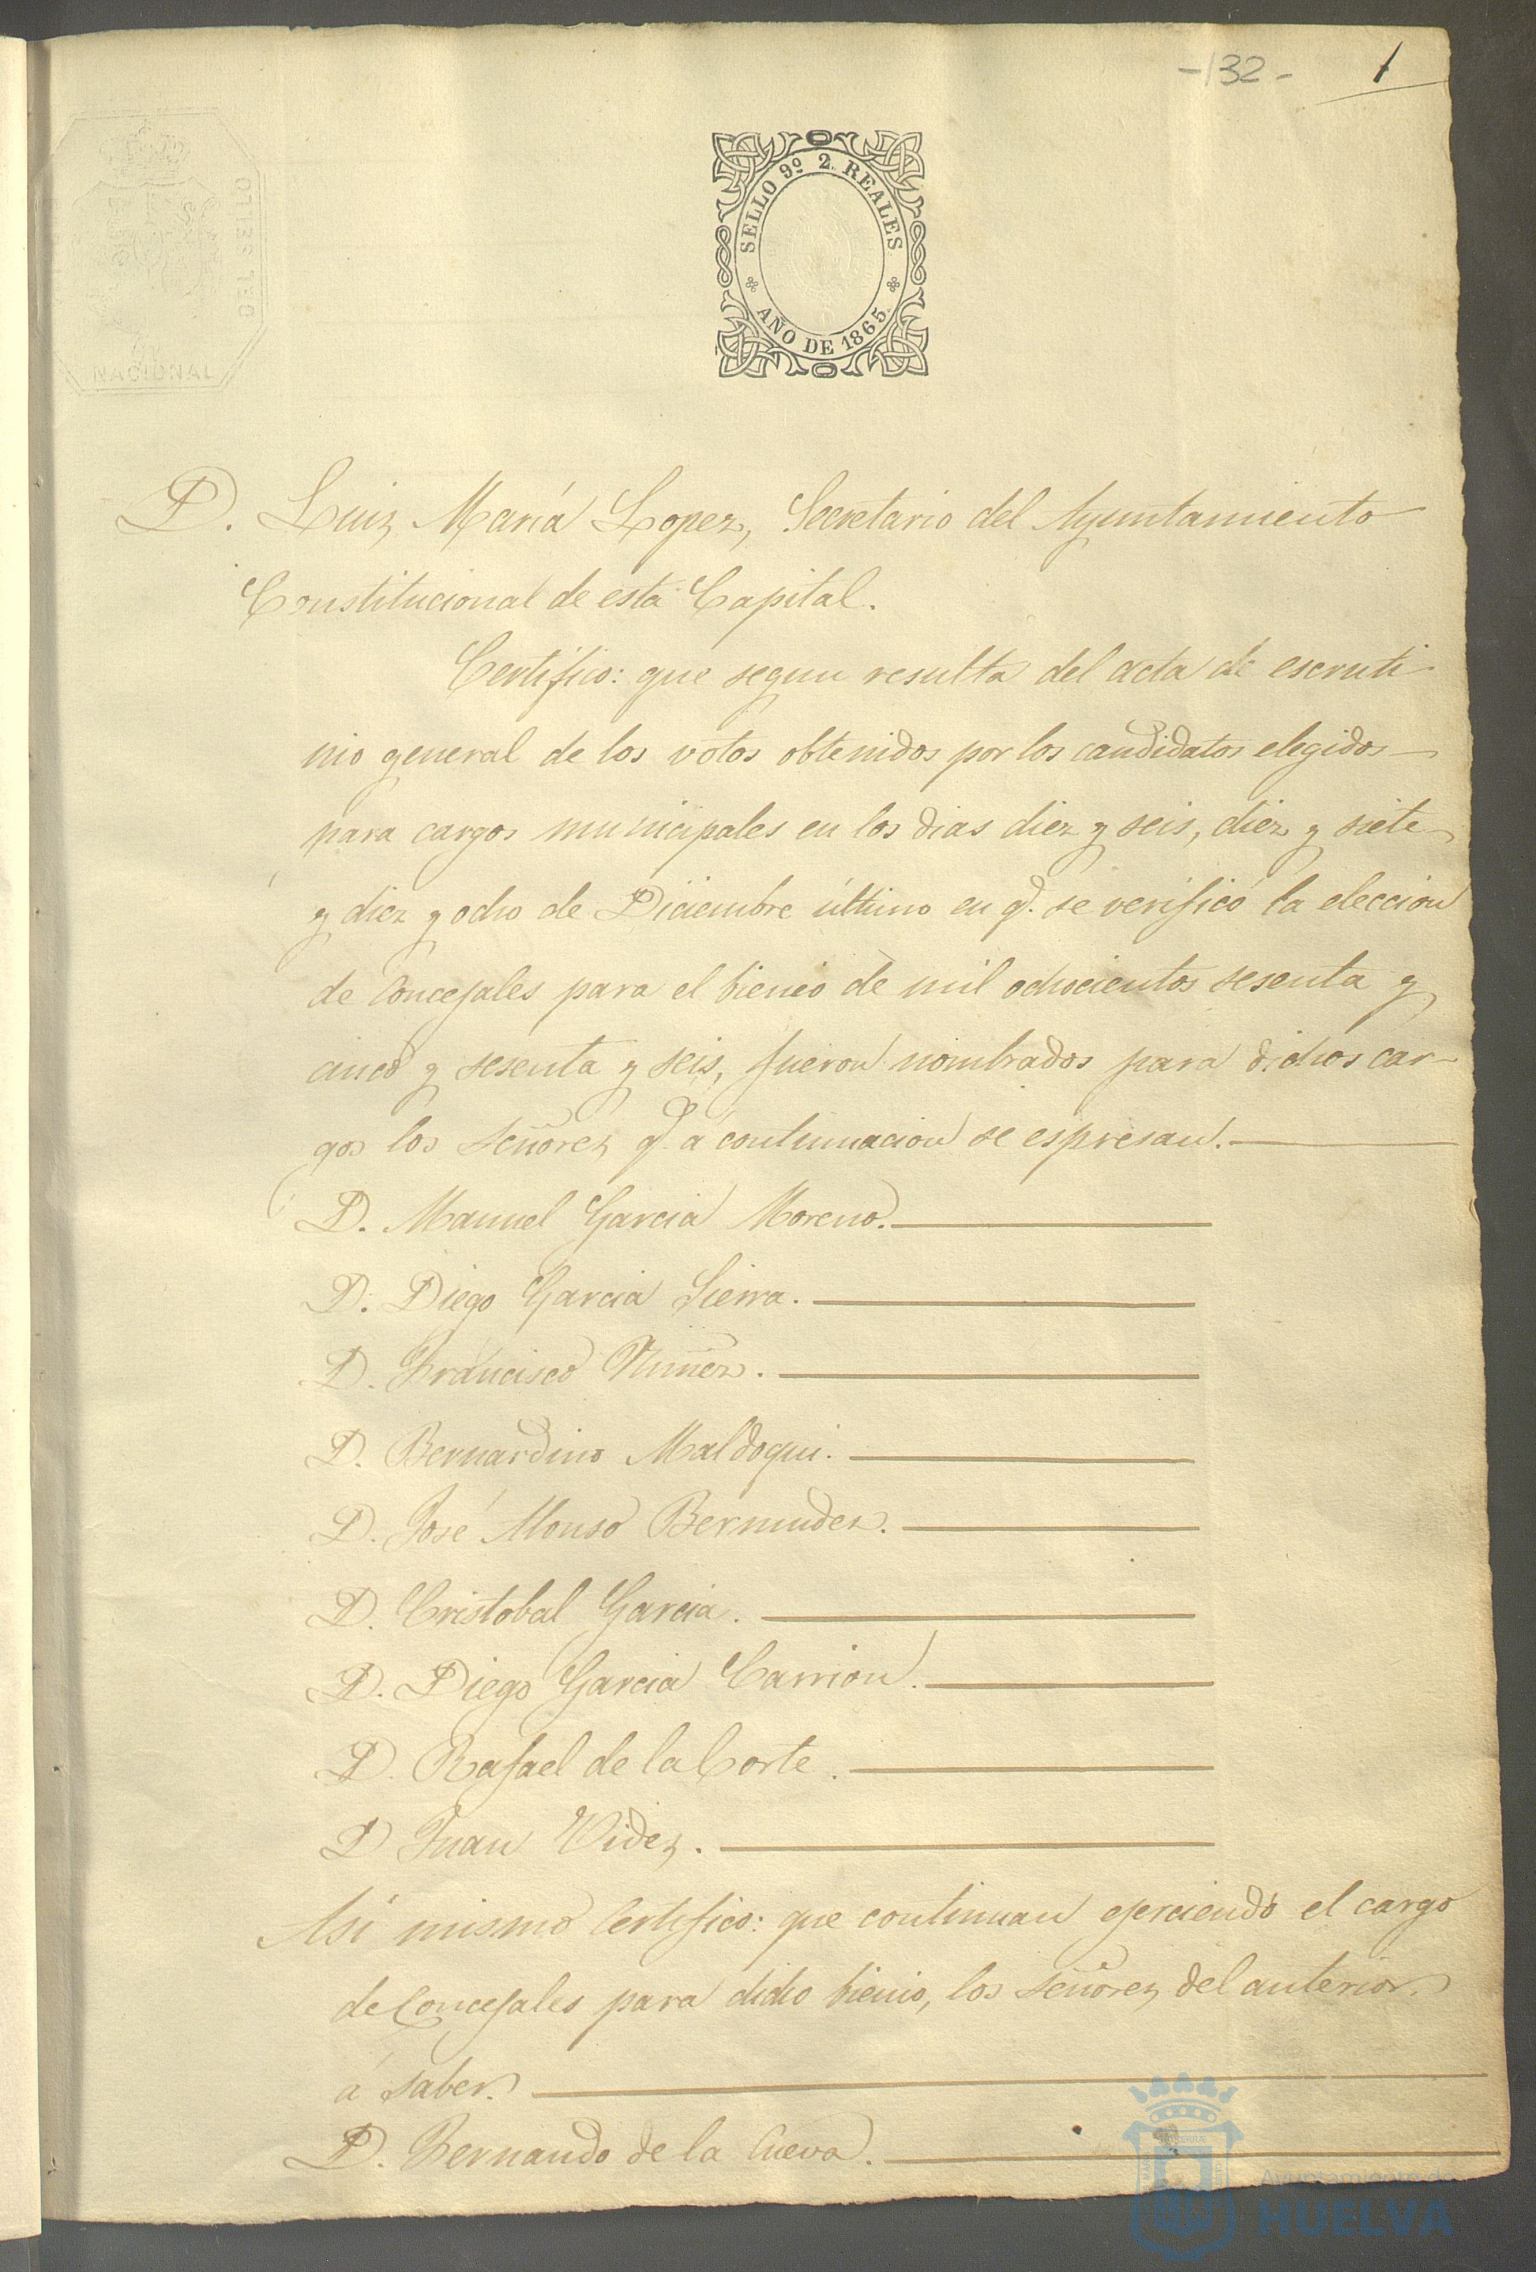 -132-
1
SELLO 9º 2. REALES
AÑO DE 1865
DEL SELLO
NACIONAL
D. Luis María Lopez, Secretario del Ayuntamiento
Constitucional de esta Capital.
Certifico: que segun resulta del acta de escruti-
nio general de los votos obtenidos por los candidatos elegidos
para cargos municipales en los dias diez y seis, diez y siete
y diez y ocho de Diciembre último en q. se verificó la eleccion
de Concejales para el bienio de mil ochocientos sesenta y
cinco y sesenta y seis, fueron nombrados para dichos car-
gos los Señores q. á continuacion se espresan.
D. Manuel Garcia Moreno.
D. Diego Garcia Sierra.
D. Francisco Nuñez.
D. Bernardino Maldoqui.
D. José Alonso Bermudez.
D. Cristobal Garcia.
D. Diego Garcia Carrion.
D. Rafael de la Corte.
D Juan Videz.
Así mismo Certifico: que continuan ejerciendo el cargo
de Concejales para dicho bienio, los Señores del anterior.
á saber.
D. Fernando de la Cueva.
Ayuntamiento de
HUELVA